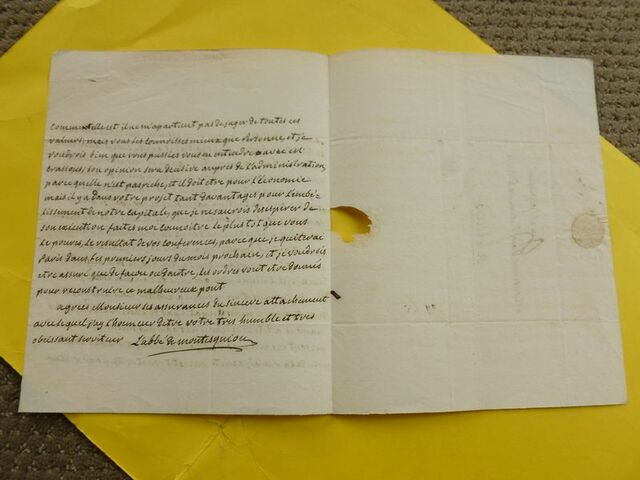 Comme telle est il ne m'apartient pas de juger de toutes ces
valeurs, mais vous les connoissés mieux que personne et je
voudrois bien que vous pussiés vous en entendre avec
son opinion sera decisive aupres de l'administration
parce qu'elle n'est pas riche, et il doit etre pour l'économie
mais il y a dans votre projet tant d'avantages pour l'embé-
lissement de notre capitale que je ne saurois desesperer de
son execution faites moi connoitre le plus tot que vous
le pourés, le resultat de vos conferences, parce que je quiterai
Paris dans les premiers jours du mois prochain, et je voudrois
etre assuré que de facon ou d'autre, les ordres vont etre donnés
pour reconstruire ce malheureux pont
agrées Monsieur les assurances du sincere attachement
avec lequel j'ay l'honneur d'etre votre tres humble et tres
obeissant serviteur L'abbé de montesquiou